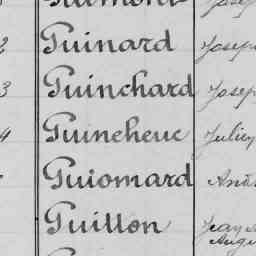 2 Guinard Josep
3 Guinchard Josep
4 Guineheuc Julien
Guiomard
Guitton Jean
Augu